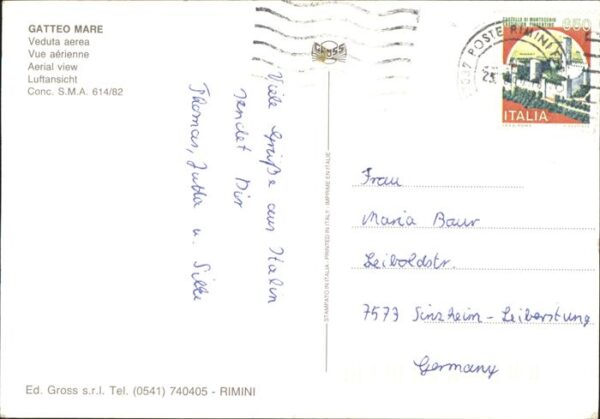 GATTEO MARE
Veduta aerea
Vue aérienne
Aerial view
Luftansicht
Conc. S.M.A. 614/82
GROSS
POSTE RIMINI
650
CASTELLO DI MONTECCHIO
ITALIA
Viele Grüße aus Italien
sendet Dir
Thomas, Jutta u. Silke
STAMPATO IN ITALIA - PRINTED IN ITALY - IMPRIME EN ITALIE
Frau
Maria Baur
Leiboldstr.
7573 Sinzheim-Leiberstung
Germany
Ed. Gross s.r.l. Tel. (0541) 740405 - RIMINI